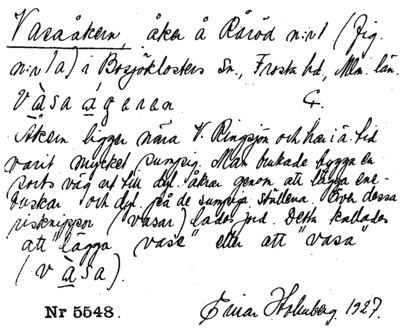 Vasaåkern, åker å Råröd n:r 1 (fig.
n:r 1a) i Bosjöklosters Sn., Frosta hd, Mlm. län.
vàsaågeren
Åkern ligger nära V. Ringsjön och har i ä. tid
varit mycket sumpig. Man brukade bygga en
sorts väg ut till dyl. åkrar genom att lägga ene-
buskar och dyl. på de sumpiga ställena. Över dessa
risknippor (vasar) lades jord. Detta kallades
att "lägga vase" eller att "vasa"
(vàsa).
Nr 5548. Einar Holmberg. 1927.